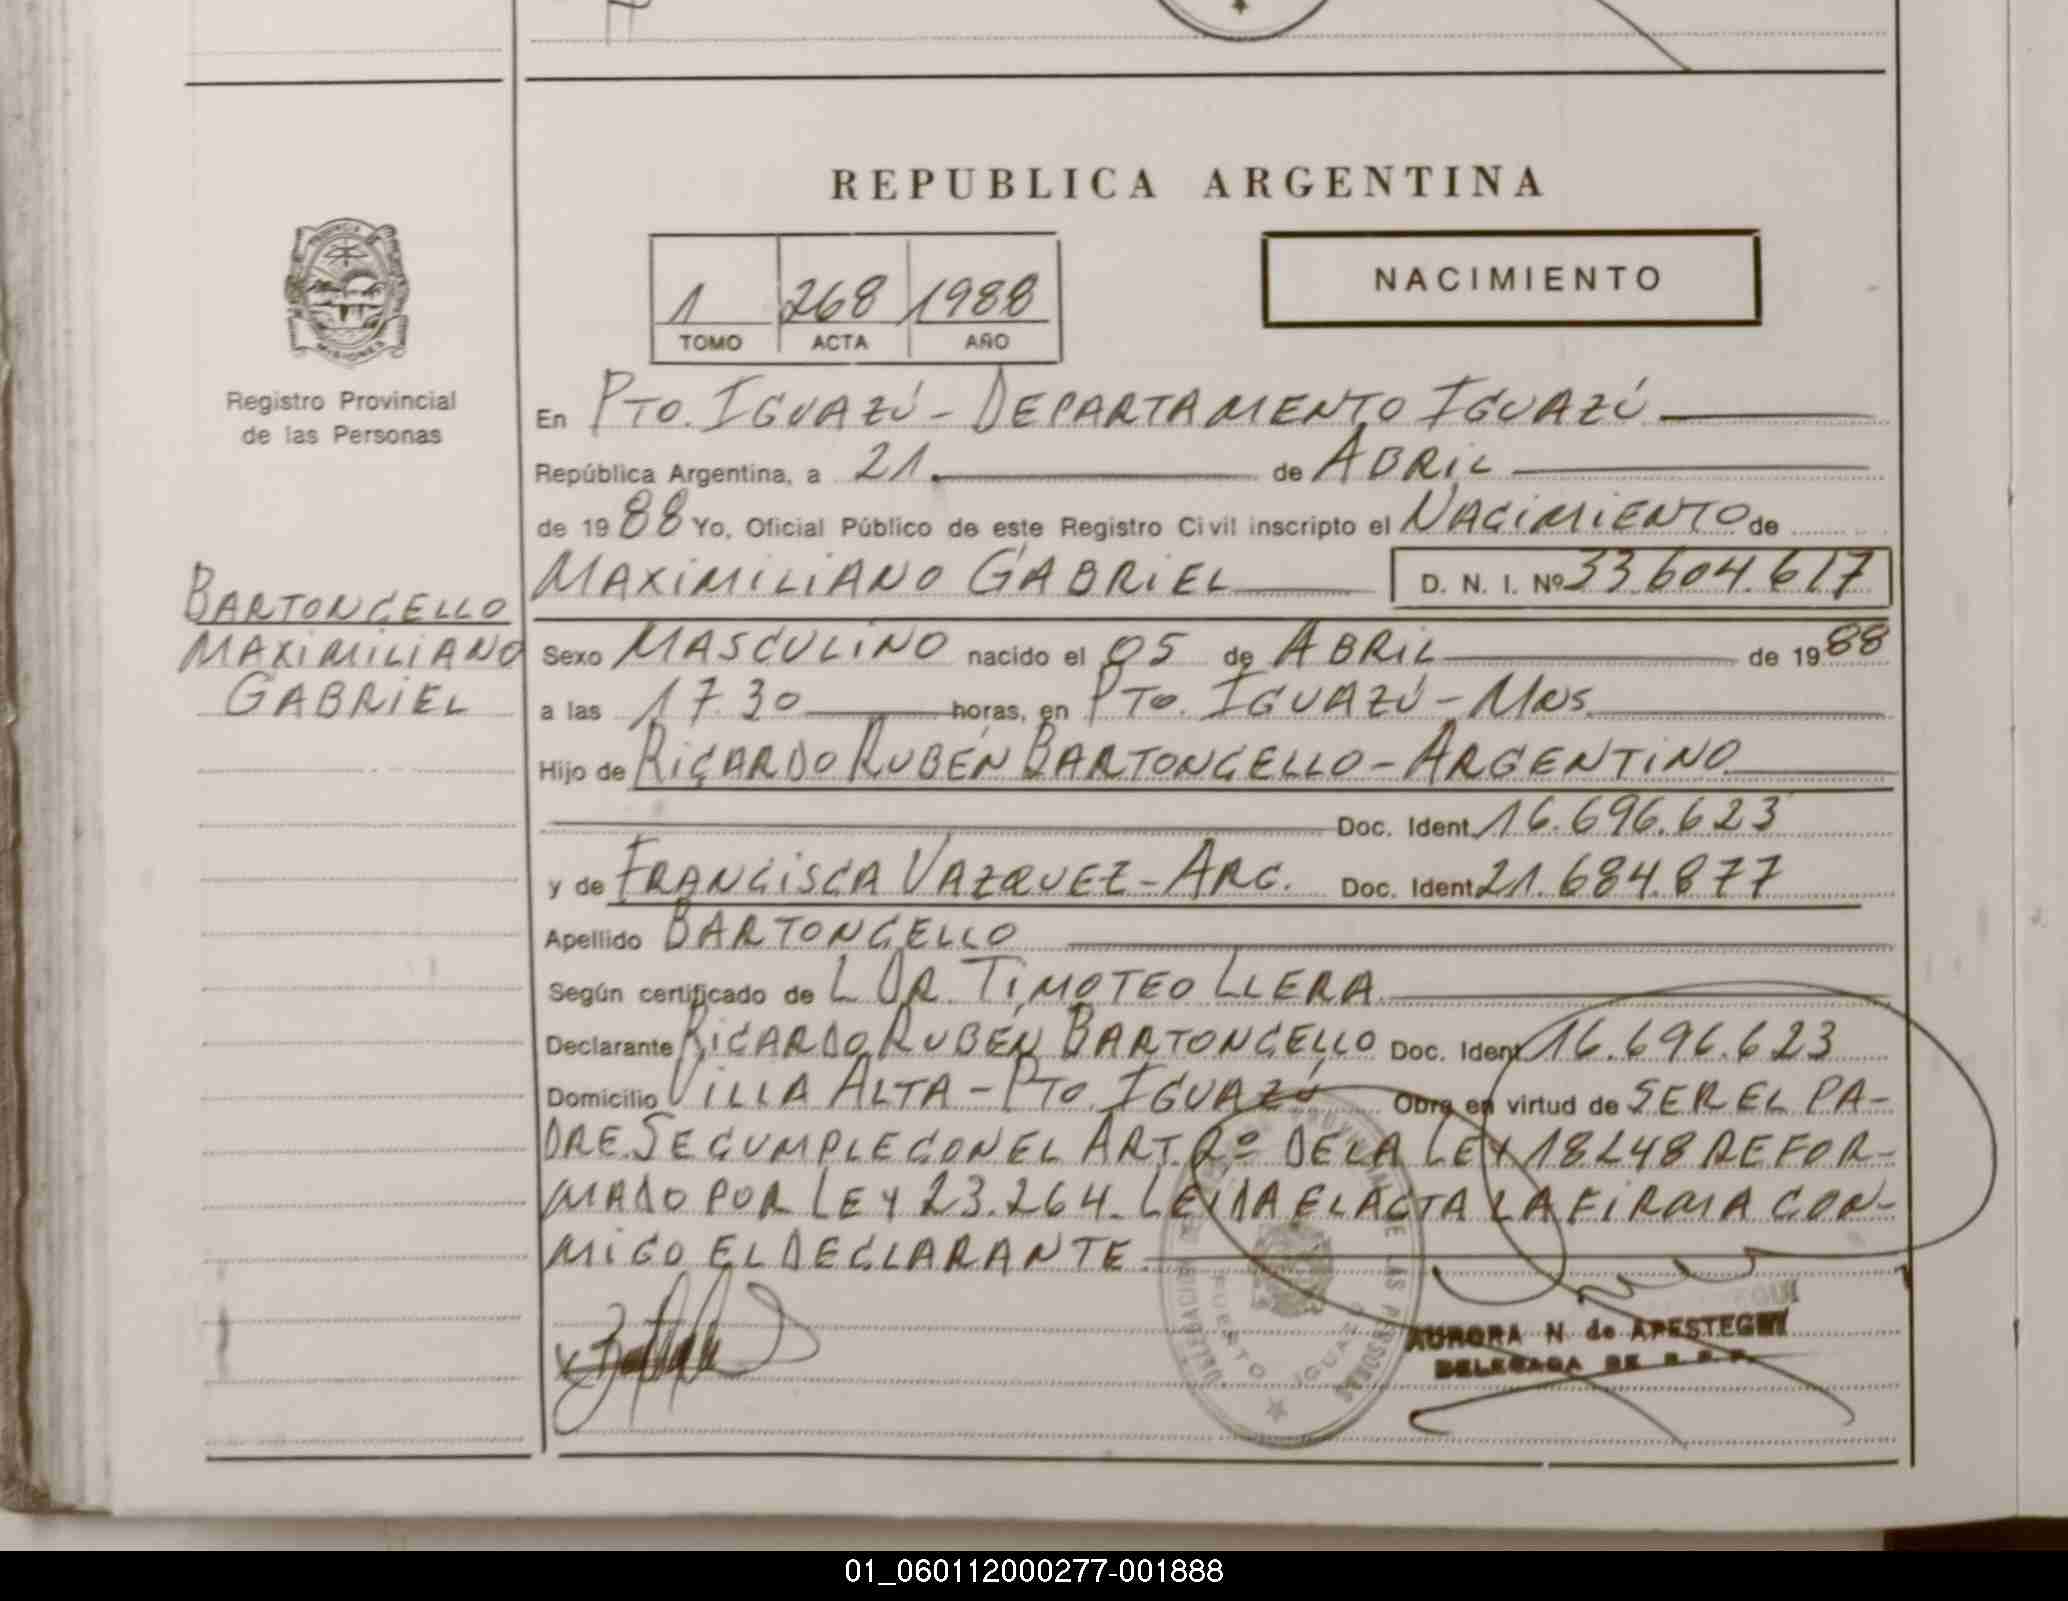 REPUBLICA ARGENTINA
PROVINCIA DE
MISIONES
Registro Provincial
de las Personas
1 268 1988
TOMO ACTA AÑO
NACIMIENTO
En PTO. IGUAZÚ - DEPARTAMENTO IGUAZÚ
República Argentina, a 21 de ABRIL
de 1988 Yo, Oficial Público de este Registro Civil inscripto el NACIMIENTO de
MAXIMILIANO GABRIEL D. N. I. Nº 33.604.617
BARTONCELLO
MAXIMILIANO
GABRIEL
Sexo MASCULINO nacido el 05 de ABRIL de 1988
a las 17.30 horas, en PTO. IGUAZÚ - MNS.
Hijo de RICARDO RUBÉN BARTONCELLO - ARGENTINO
Doc. Ident. 16.696.623
y de FRANCISCA VAZQUEZ - ARG. Doc. Ident. 21.684.877
Apellido BARTONCELLO
Según certificado de L DR. TIMOTEO LLERA
Declarante RICARDO RUBÉN BARTONCELLO Doc. Ident 16.696.623
Domicilio VILLA ALTA - PTO. IGUAZÚ Obra en virtud de SER EL PA-
DRE. SE CUMPLE CON EL ART. 2º DE LA LEY 18248 REFOR-
MADO POR LEY 23.264. LEIDA EL ACTA LA FIRMA CON-
MIGO EL DECLARANTE.
DELEGACION PROVINCIAL DE LAS PERSONAS
PUERTO IGUAZU
AURORA N. de APESTEGUI
DELEGADA DE R.P.P.
01_060112000277-001888